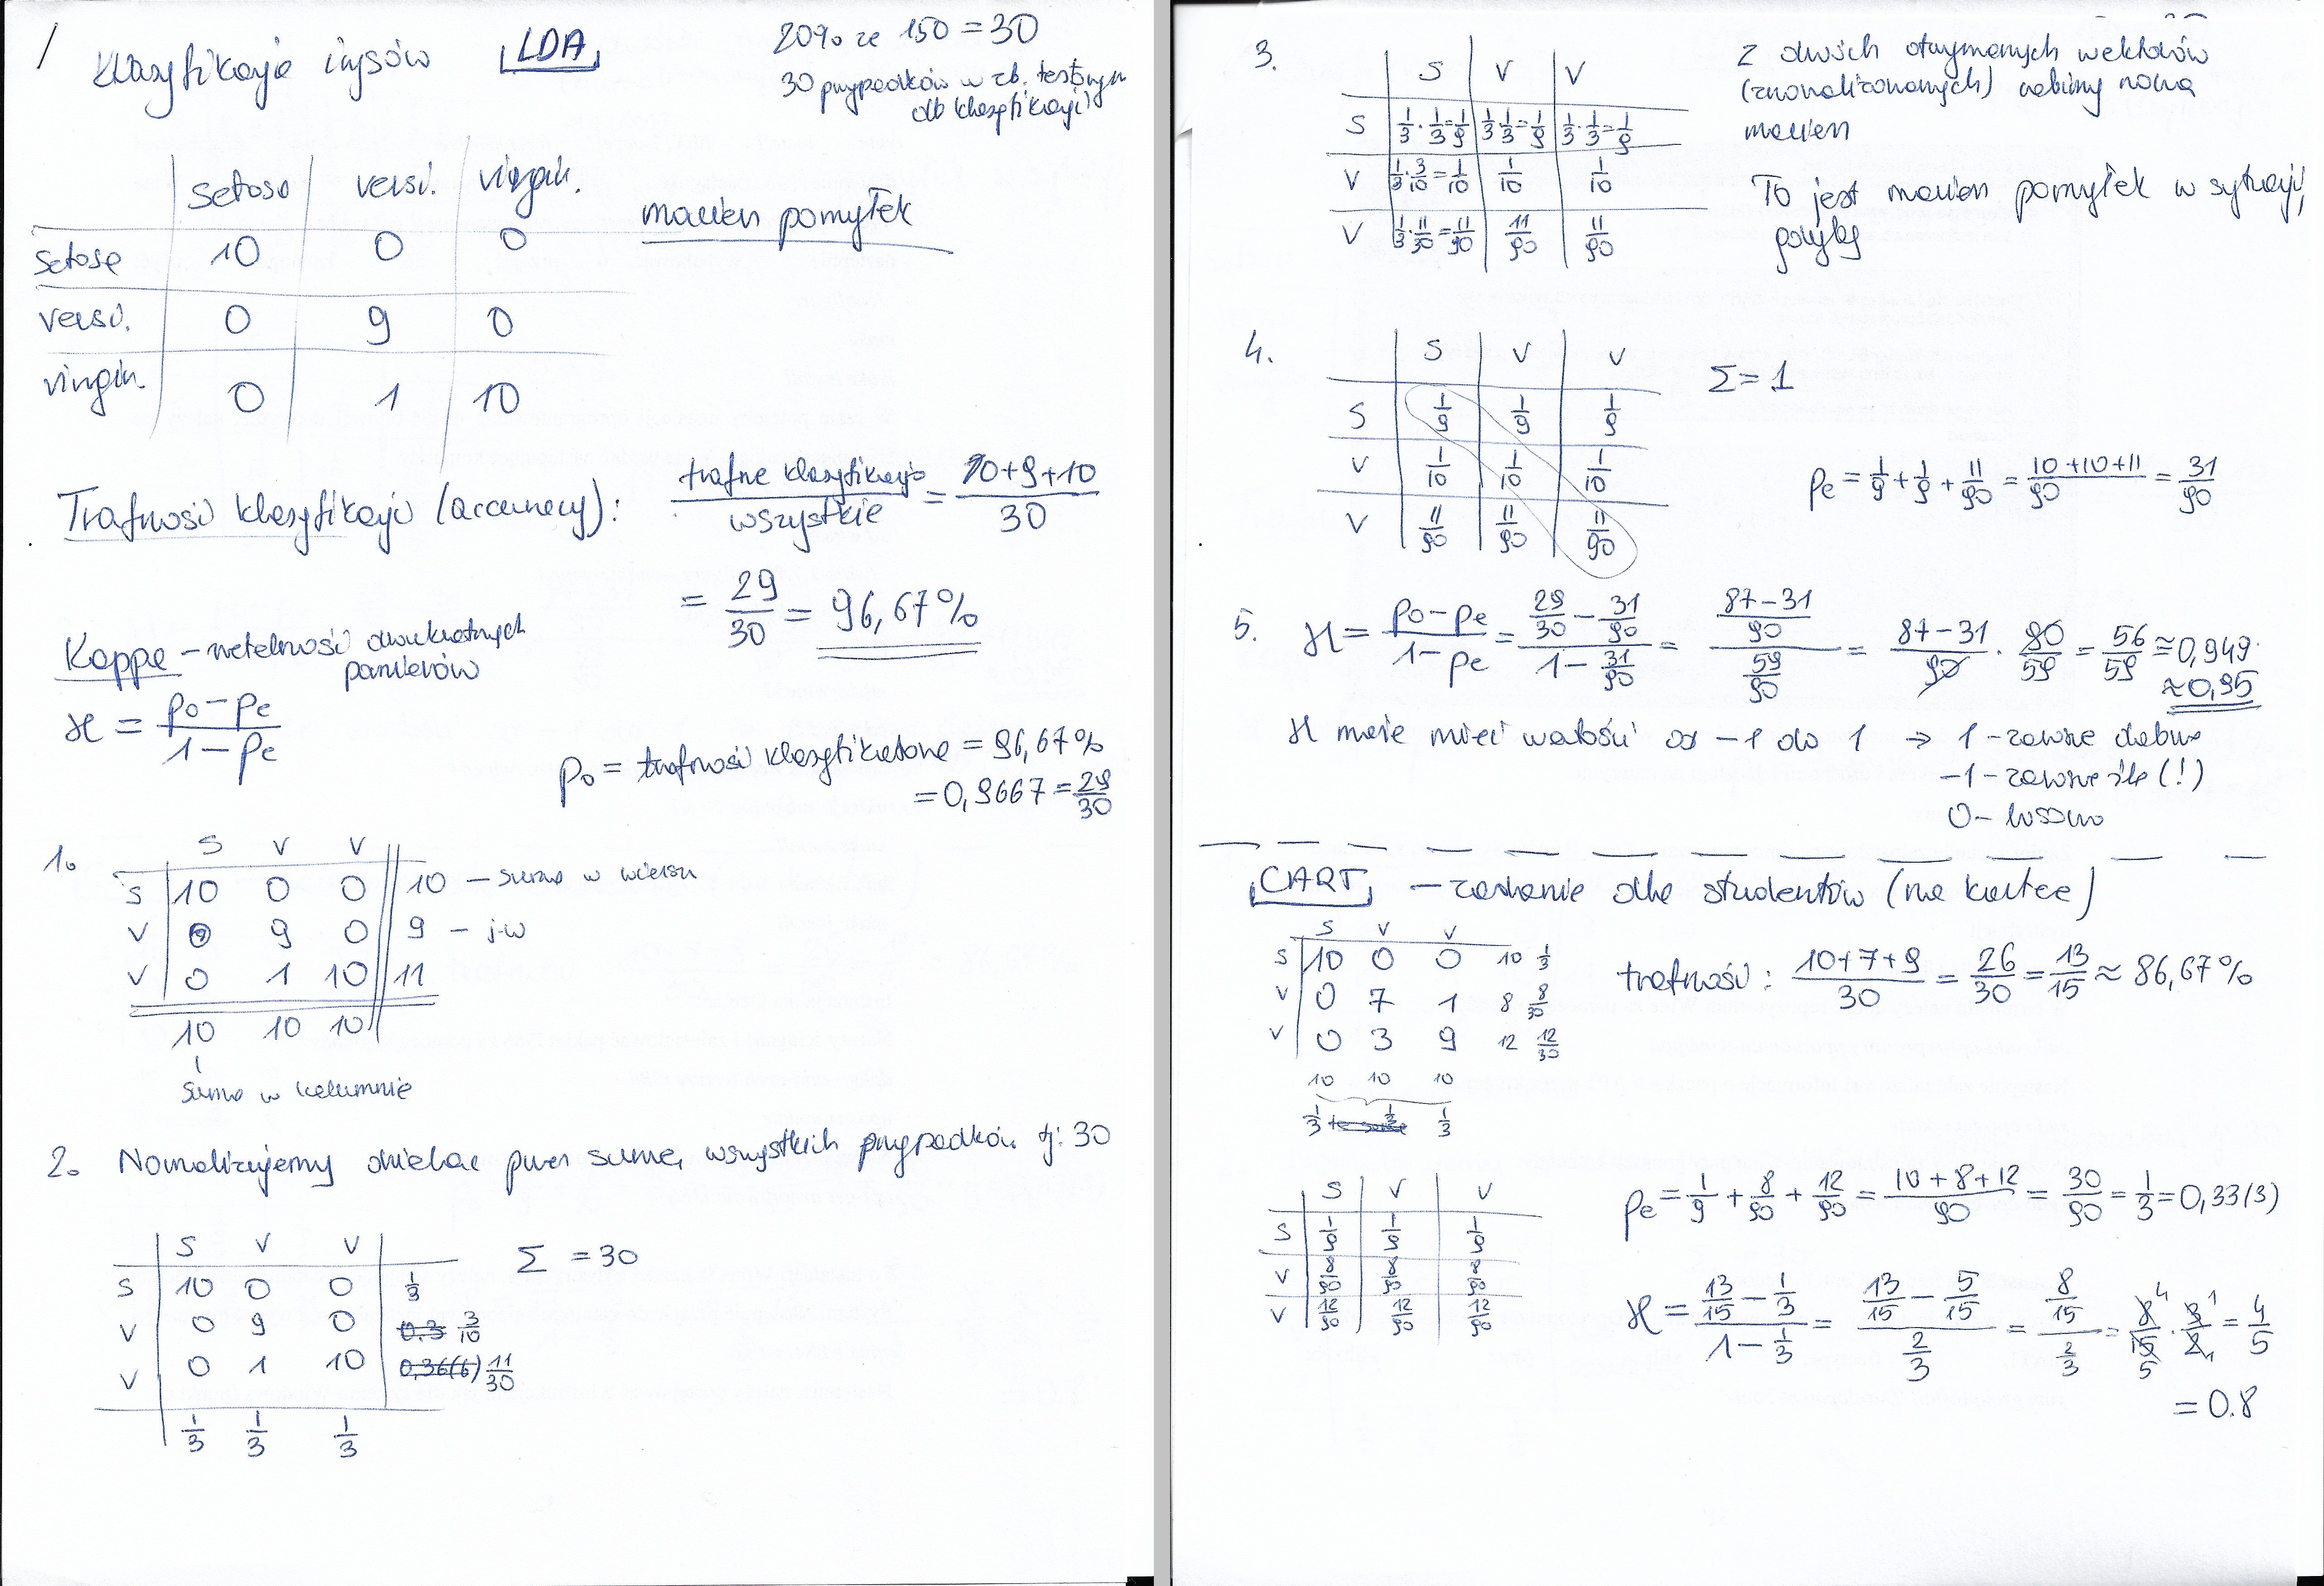 Klasyfikacja irysów LDA
20% ze 150 = 30
30 przypadków w zb. testowym
do klasyfikacji
setosa versi. virgin.
macierz pomyłek
setosa 10 0 0
versi. 0 9 0
virgin. 0 1 10
Trafność klasyfikacji (accuracy): trafne klasyfikacje / wszystkie = 10+9+10 / 30
= 29/30 = 96,67%
Kappa - rzetelność dwukrotnych
pomiarów
ϰ = po - pe / 1 - pe
po = trafność klasyfikatora = 96,67%
= 0,9667 = 29/30
1.
S V V
S 10 0 0 10 - suma w wierszu
V 0 9 0 9 - j.w
V 0 1 10 11
10 10 10
suma w kolumnie
2. Normalizujemy dzieląc przez sumę wszystkich przypadków tj: 30
S V V
Σ = 30
S 10 0 0 1/3
V 0 9 0 0.3 3/10
V 0 1 10 0,36(6) 11/30
1/3 1/3 1/3
3.
S V V
S 1/3·1/3=1/9 1/3·1/3=1/9 1/3·1/3=1/9
V 1/3·3/10=1/10 1/10 1/10
V 1/3·11/30=11/90 11/90 11/90
Z dwóch otrzymanych wektorów
(znormalizowanych) robimy nową
macierz
To jest macierz pomyłek w sytuacji,
gdyby
4.
S V V
Σ = 1
S 1/9 1/9 1/9
V 1/10 1/10 1/10
V 11/90 11/90 11/90
pe = 1/9 + 1/9 + 11/90 = 10+10+11 / 90 = 31/90
5. ϰ = po - pe / 1 - pe = 29/30 - 31/90 / 1 - 31/90 = 87-31/90 / 59/90 = 87-31/90 · 90/59 = 56/59 ≈ 0,949
≈ 0,95
ϰ może mieć wartości od -1 do 1 → 1 - zawsze dobrze
-1 - zawsze źle (!)
0 - losowo
CART - zadanie dla studentów (na kartce)
S V V
S 10 0 0 10 1/3
V 0 7 1 8 8/30
V 0 3 9 12 12/30
10 10 10
1/3 1/3 1/3
trafność: 10+7+9 / 30 = 26/30 = 13/15 ≈ 86,67%
S V V
S 1/9 1/9 1/9
V 8/90 8/90 8/90
V 12/90 12/90 12/90
pe = 1/9 + 8/90 + 12/90 = 10+8+12 / 90 = 30/90 = 1/3 = 0,33(3)
ϰ = 13/15 - 1/3 / 1 - 1/3 = 13/15 - 5/15 / 2/3 = 8/15 / 2/3 = 8/15 · 3/2 = 4/5
= 0.8